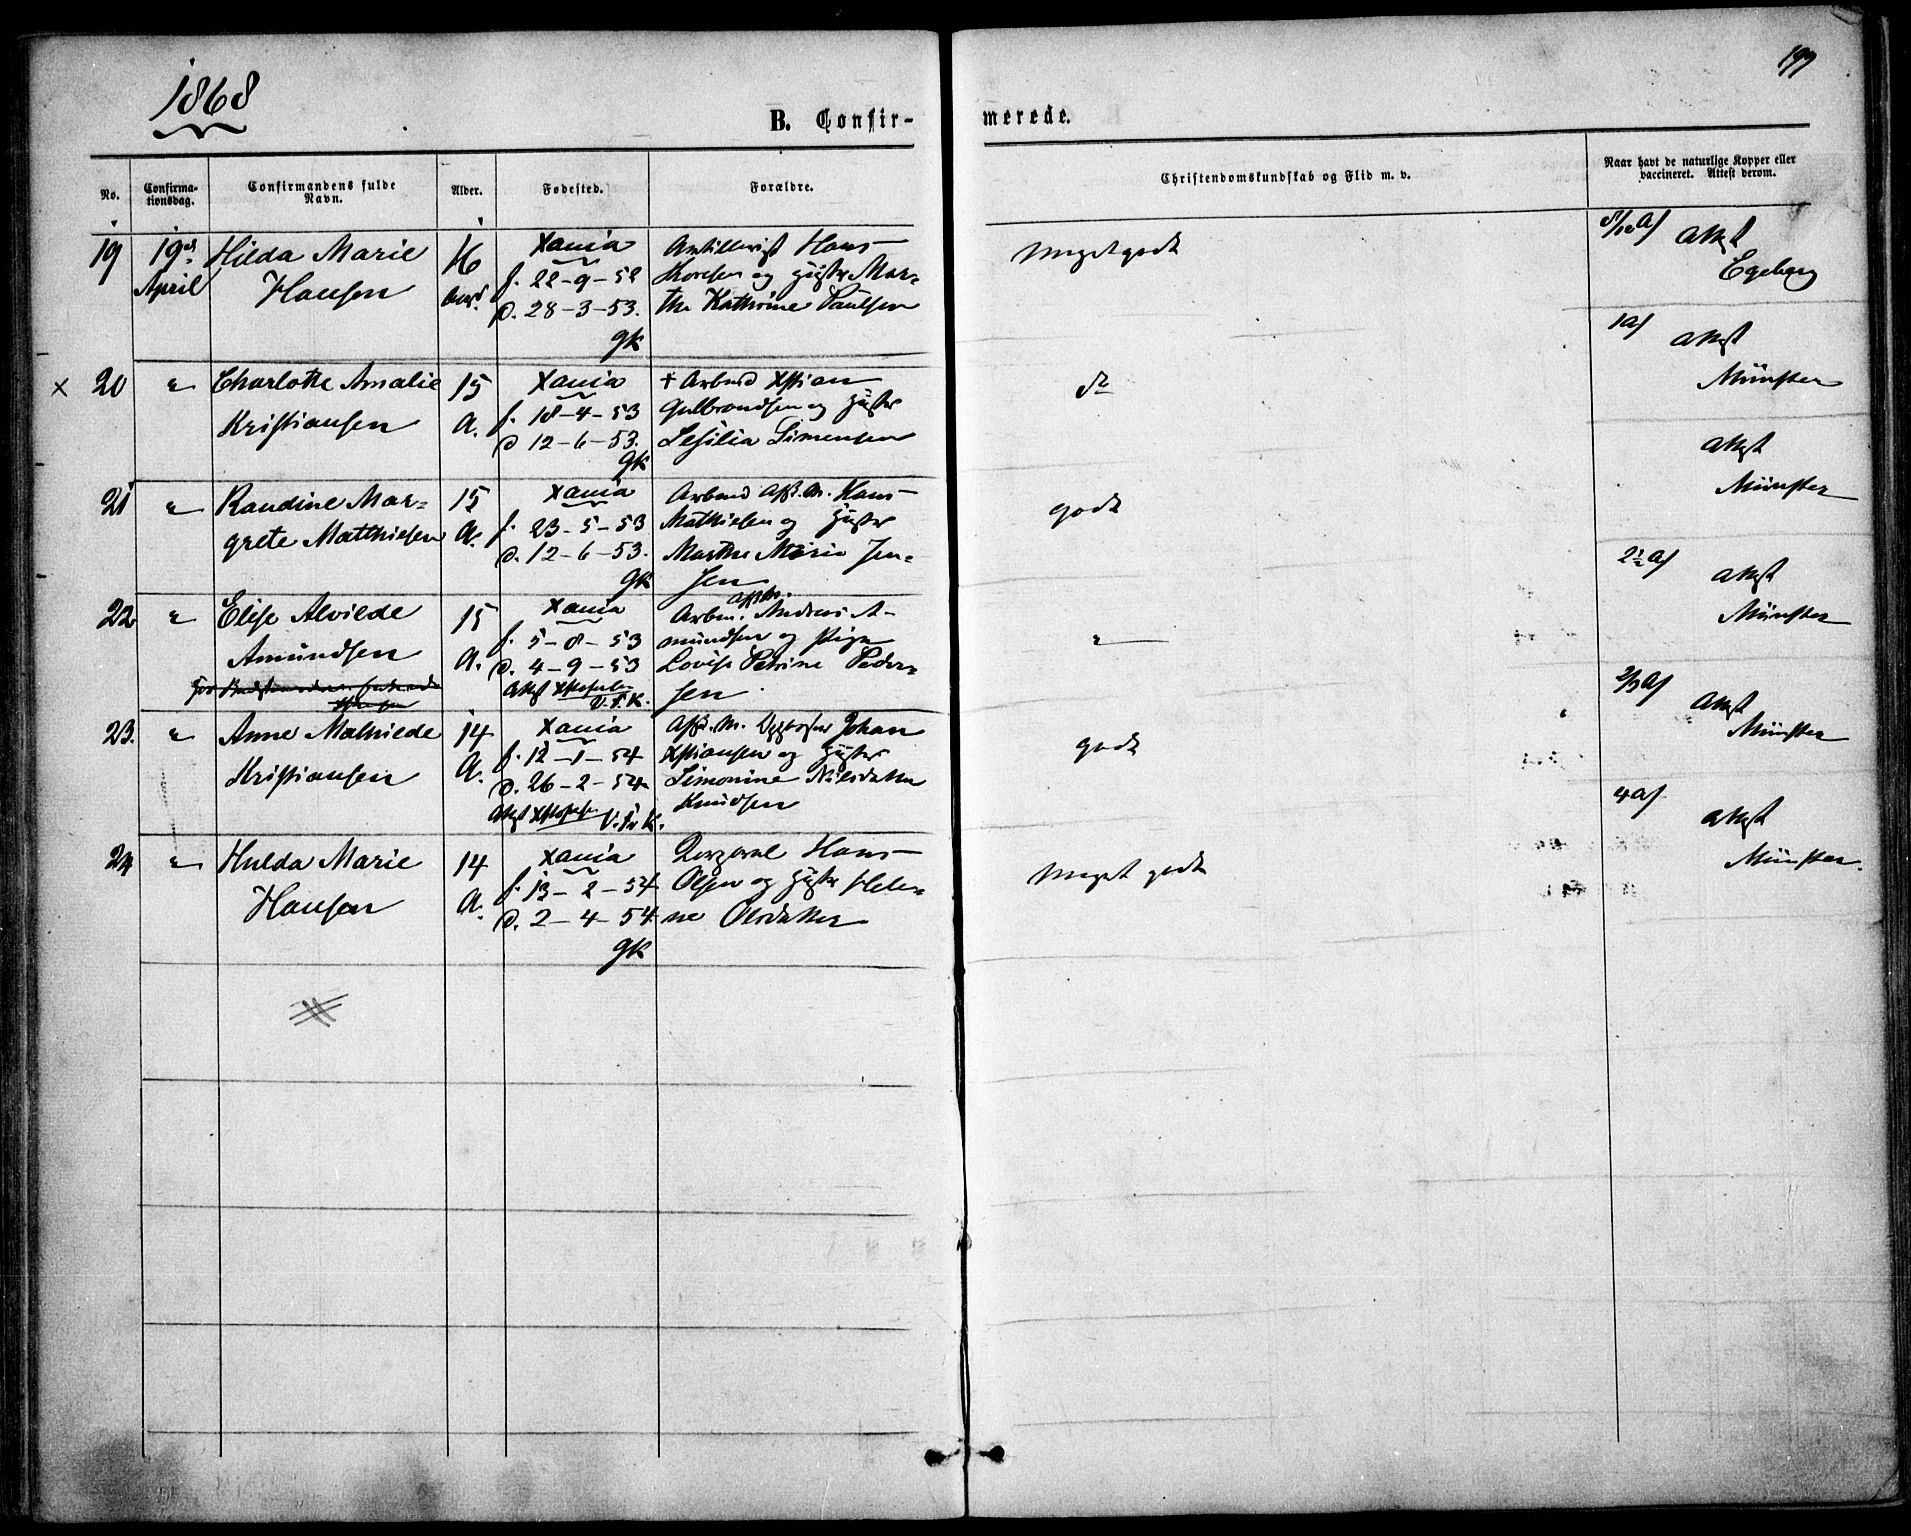 1868
199
B. Confir-
merede.
No.
Confirma-
tionsdag.
Confirmandens fulde
Navn.
Alder.
Fødested.
Forældre.
Christendomskundskab og Flid m. v.
Naar havt de naturlige Kopper eller
vaccineret. Attest derom.
19
19de
April
Hilda Marie
Hansen
16
Xania
f. 22-9-52
d. 28-3-53.
gK
Artillerist Hans
og Hustr Mar-
the Kathrine Paulsen
Meget godt
Attest
Egeberg
× 20
"
Charlotte Amalie
Kristiansen
15
A.
Xania
f. 18-4-53
d. 12-6-53.
gK
† Arbmd Xstian
Gulbrandsen og Hustr
Sesilia Simensen
do
1 A/
Attest
Münster
21
"
Randine Mar-
grete Matthisen
15
A.
Xania
f. 23-5-53
d. 12-6-53.
gK
Arbmd Afsk. M. Hans
Mathisen og Hustr
Marthe Marie Jen-
sen
godt
Attest
Münster
22
"
Elise Alvilde
Amundsen
15
A.
Xania
f. 5-8-53
d. 4-9-53
Attest
V.F.K.
Arbm. Andreas A-
mundsen og Pige
Lovise Petrine Peder-
sen
"
2½ A/
Attest
Münster
23.
"
Anne Mathilde
Kristiansen
14
A.
Xania
f. 12-1-54
d. 26-2-54
Attest
V.F.K.
Afsk. M. Johan
Xstiansen og Hustr
Simonine Nilsdatter
Knudsen
godt
Attest
Münster
24
"
Hulda Marie
Hansen
14
A.
Xania
f. 13-2-54
d. 2-4-54
gK
Corporal Hans
Olsen og Hustr Hele-
ne Olsdatter
Meget godt
4 A/
Attest
Münster.